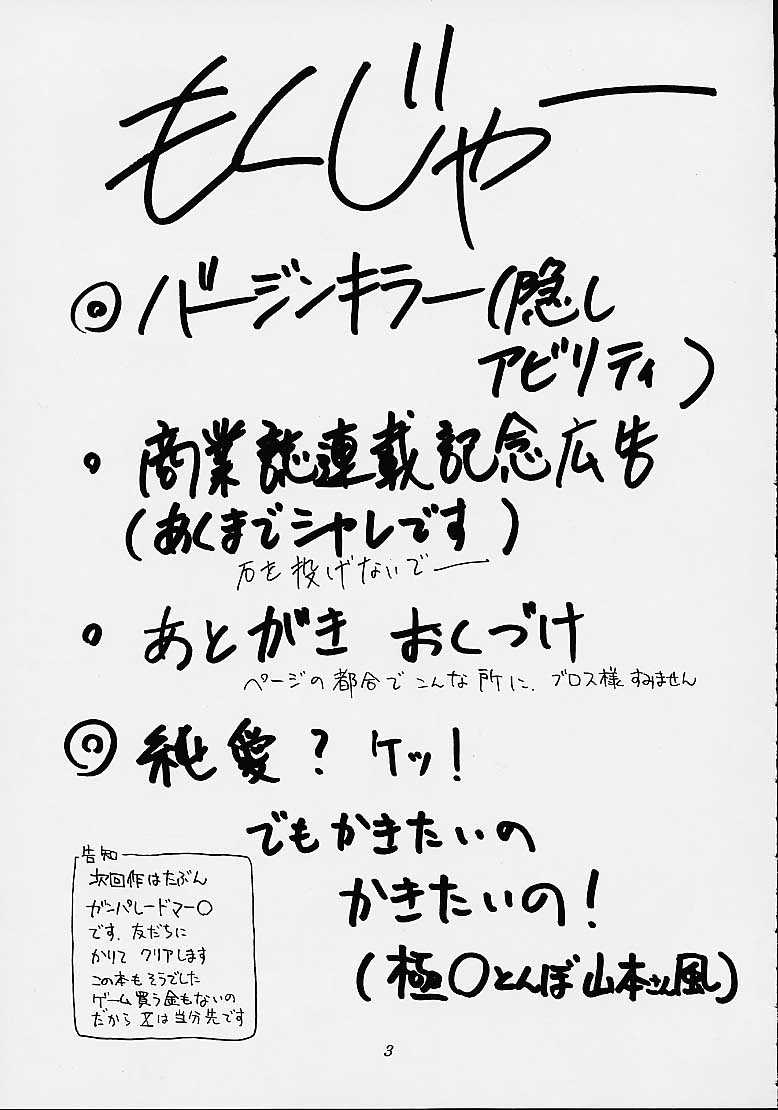 もくじゃー
◎バージンキラー(隠し
アビリティ)
・商業誌連載記念広告
(あくまでシャレです)
石を投げないでー
・あとがき おくづけ
ページの都合でこんな所に、ブロス様すみません
◎純愛?ケッ!
でもかきたいの
かきたいの!
(極○とんぼ山本さん風)
告知
次回作はたぶん
ガンパレードマー○
です。友だちに
かりて クリアします
この本もそうでした
ゲーム買う金もないの
だから Xは当分先です
3